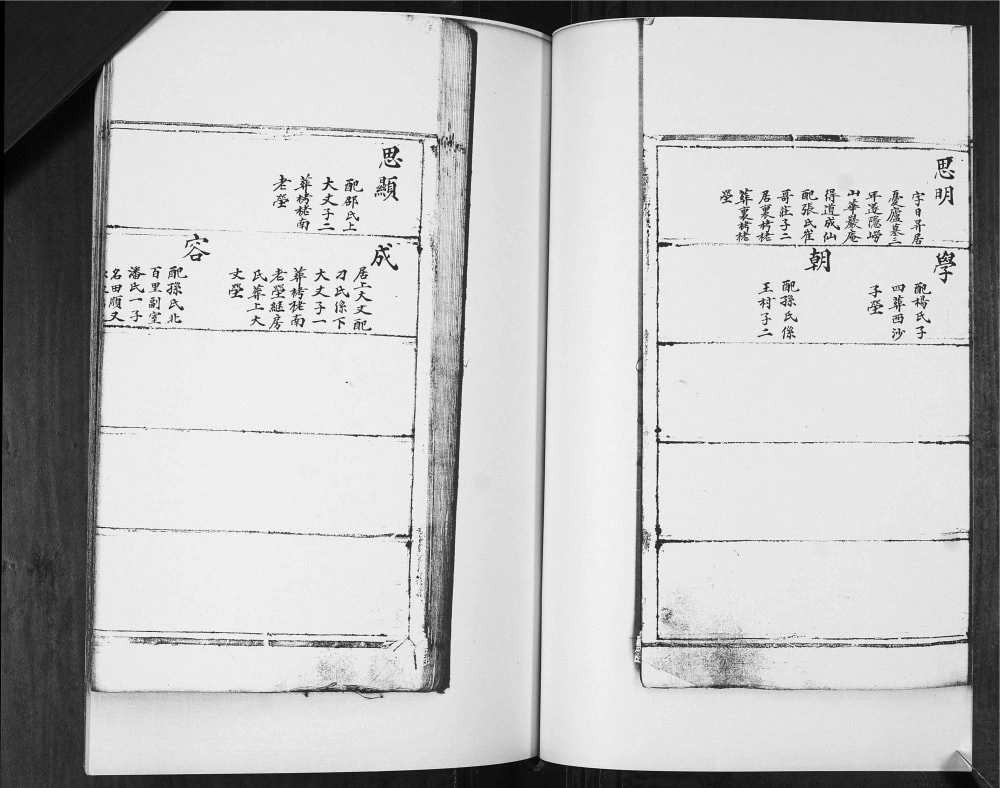 思明
字日昇居
憂廬墓三
年道隱嶗
山華嚴庵
得道成仙
配張氏崔
哥莊子二
居裏栲栳
葬裏栲栳
塋
學
配楊氏子
四葬西沙
子塋
朝
配孫氏係
王村子二
思顯
配邵氏上
大丈子二
葬栲栳南
老塋
成
居上大丈配
刁氏係下
大丈子一
葬栲栳南
老塋繼房
氏葬上大
丈塋
容
配孫氏北
百里副室
潘氏一子
名田順又